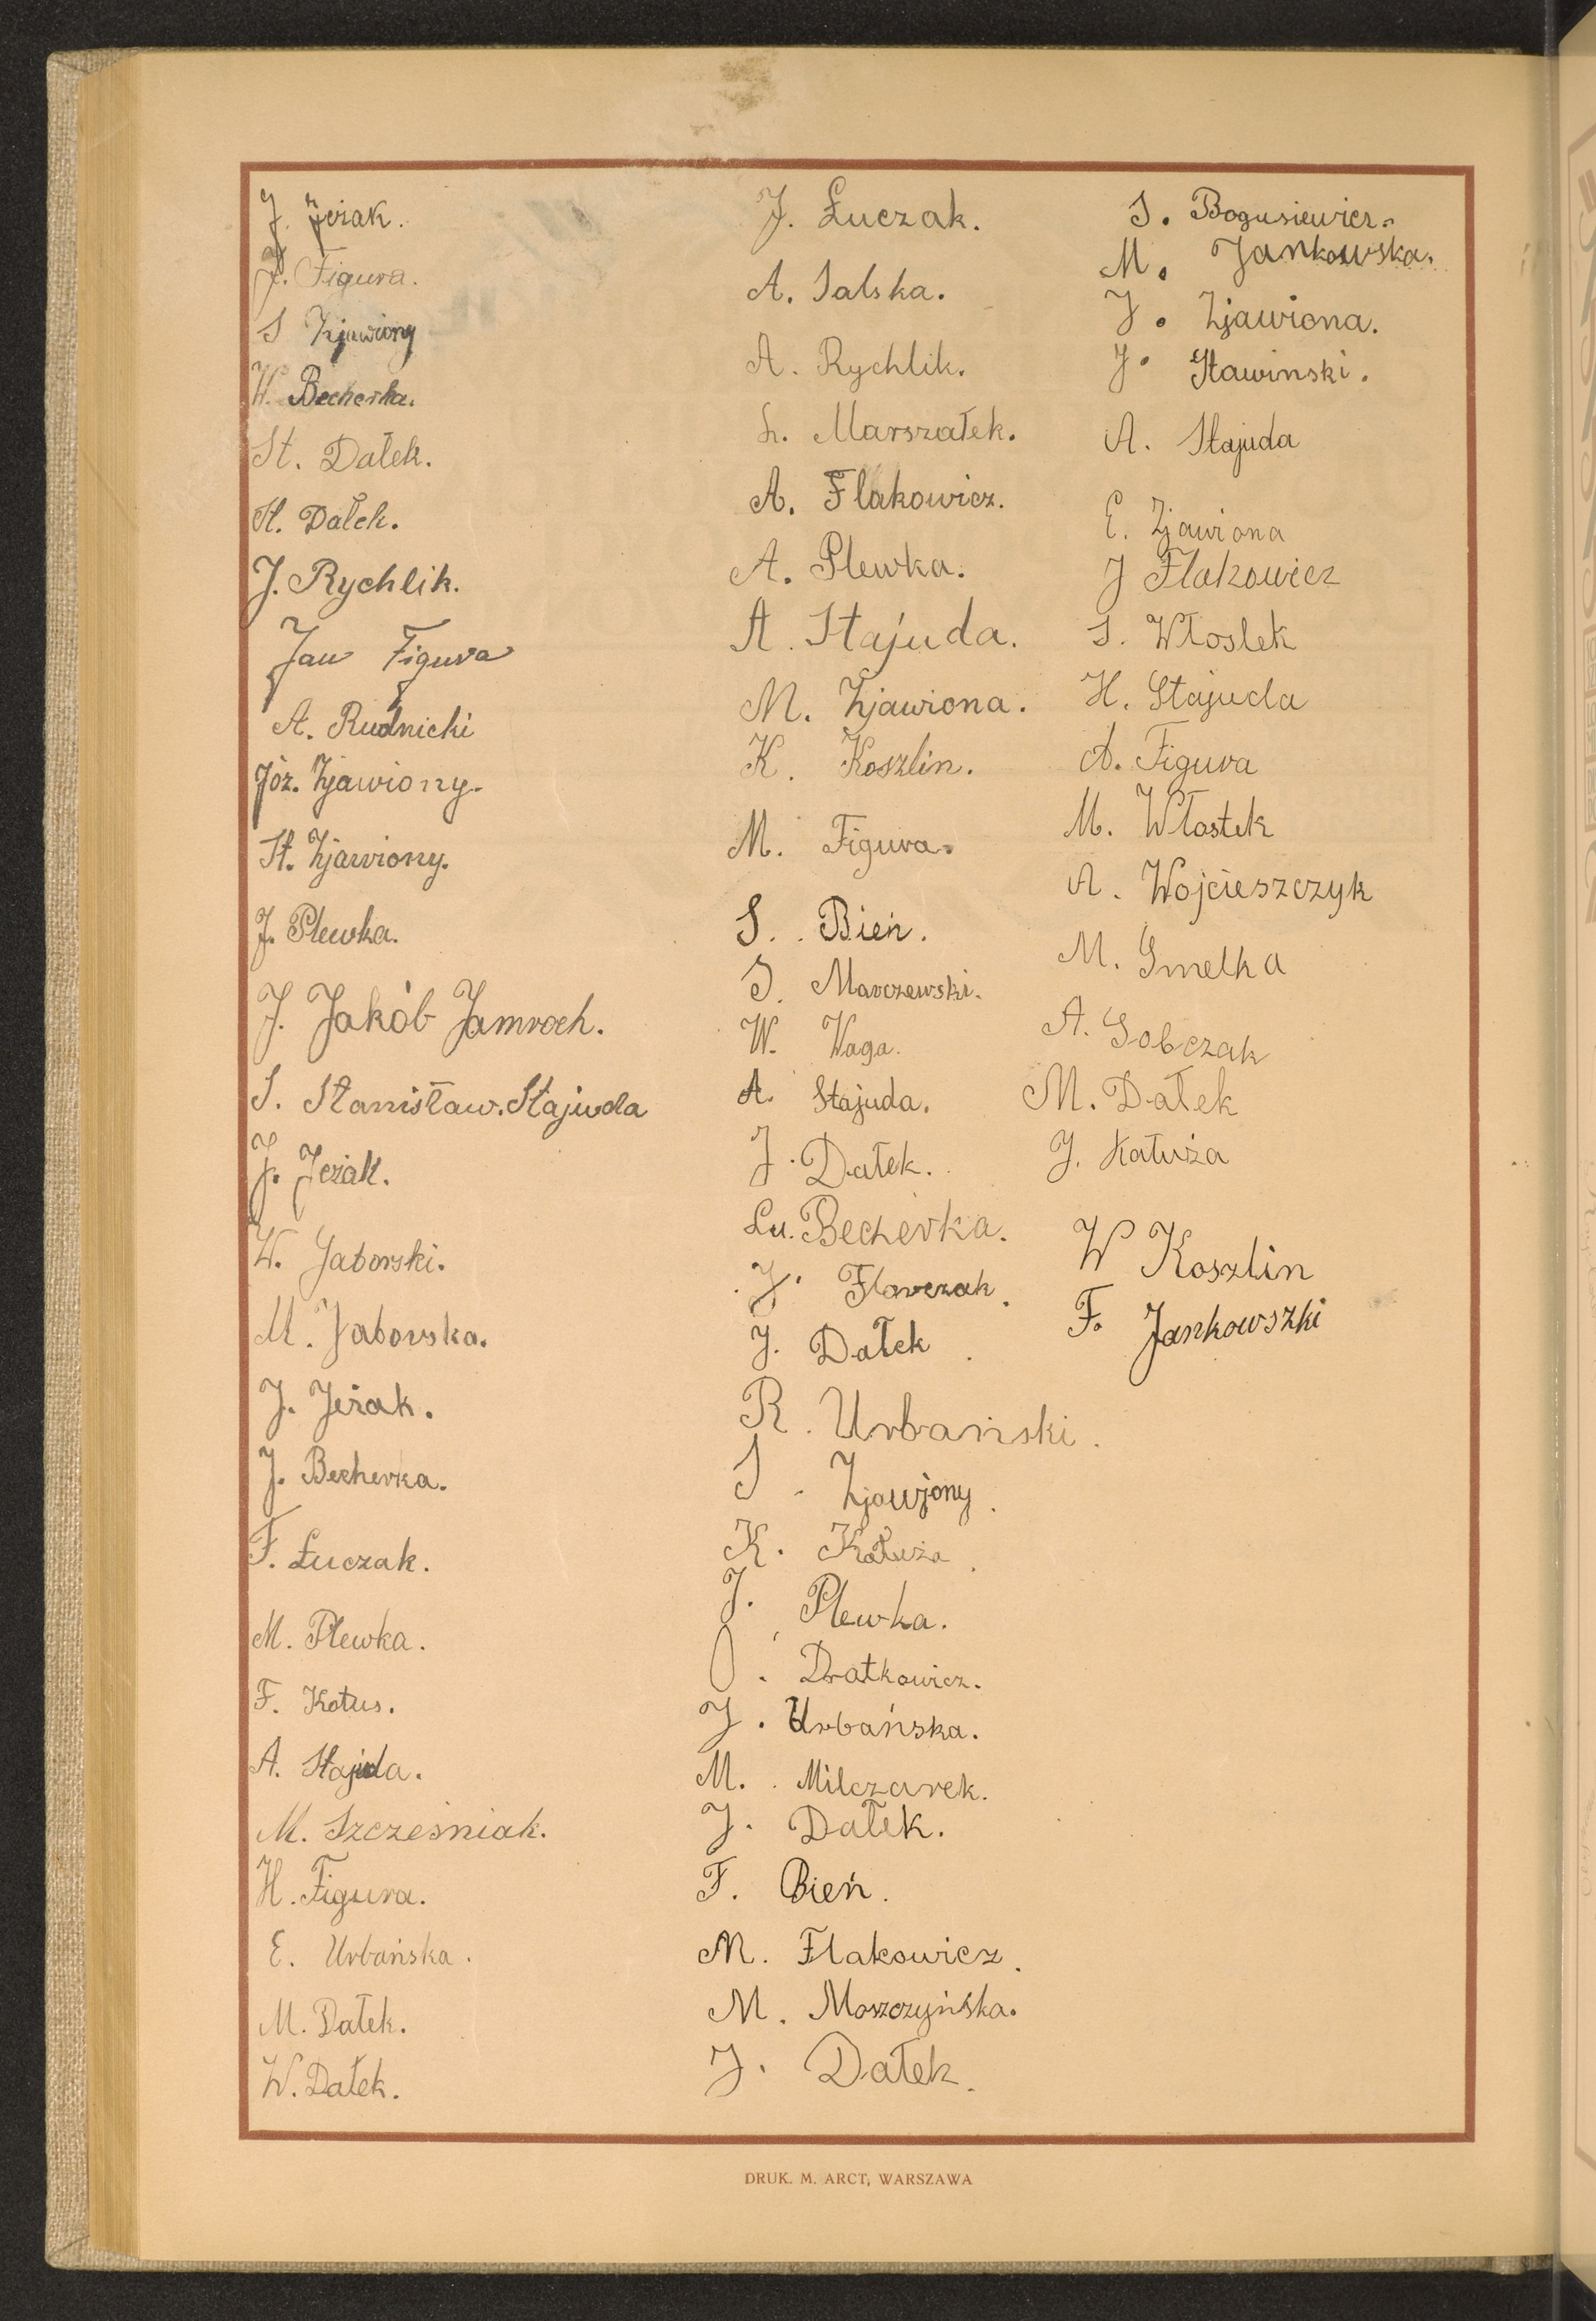 J. Jeżak.
J. Figura.
S Zjawiony
W. Becherka.
St. Dałek.
St. Dałek.
J. Rychlik.
Jan Figura
A. Rudnicki
Józ. Zjawiony.
St. Zjawiony.
J. Plewka.
J. Jakób Jamroch.
S. Stanisław. Stajuda
J. Jeżak.
W. Jaborski.
M. Jaborska.
J. Jeżak.
J. Becherka.
F. Łuczak.
M. Plewka.
F. Kotus.
A. Stajuda.
M. Szcześniak.
H. Figura.
E. Urbańska.
M. Dałek.
W. Dałek.
J. Łuczak.
A. Salska.
A. Rychlik.
L. Marszałek.
A. Flakowicz.
A. Plewka.
A. Stajuda.
M. Zjawiona.
K. Koszlin.
M. Figura.
S. Bień.
S. Marczewski.
W. Waga.
A. Stajuda.
J. Dałek.
Lu. Becherka.
J. Flarczak.
J. Dałek.
R. Urbański.
S. Zjawjony.
K. Kałuża.
J. Plewka.
J. Dratkowicz.
J. Urbańska.
M. Milczarek.
J. Dałek.
F. Bień.
M. Flakowicz.
M. Moszczyńska.
J. Dałek.
S. Bogusiewicz.
M. Jankowska.
J. Zjawiona.
J. Stawinski.
A. Stajuda
E. Zjawiona
J Flakowicz
S. Włoslek
H. Stajuda
A. Figura
M. Włostek
A. Wojcieszczyk
M. Smelka
A. Sobczak
M. Dałek
J. Kałuża
W Koszlin
F. Jankowszki
DRUK. M. ARCT, WARSZAWA